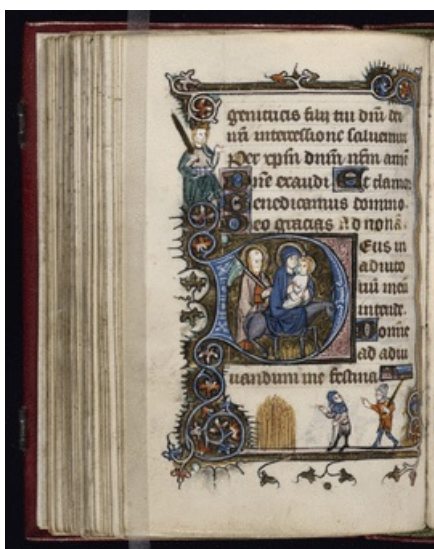 genitricis filij tui dñi dei
nr̃i intercessione saluemur
Per xp̃m dñm nr̃m amē
Dñe exaudi Et clamor
Benedicamus domino
Deo gracias Ad nonā
Deus in
adiuto
riū meū
intende
Domine
ad adiu
uandum me festina